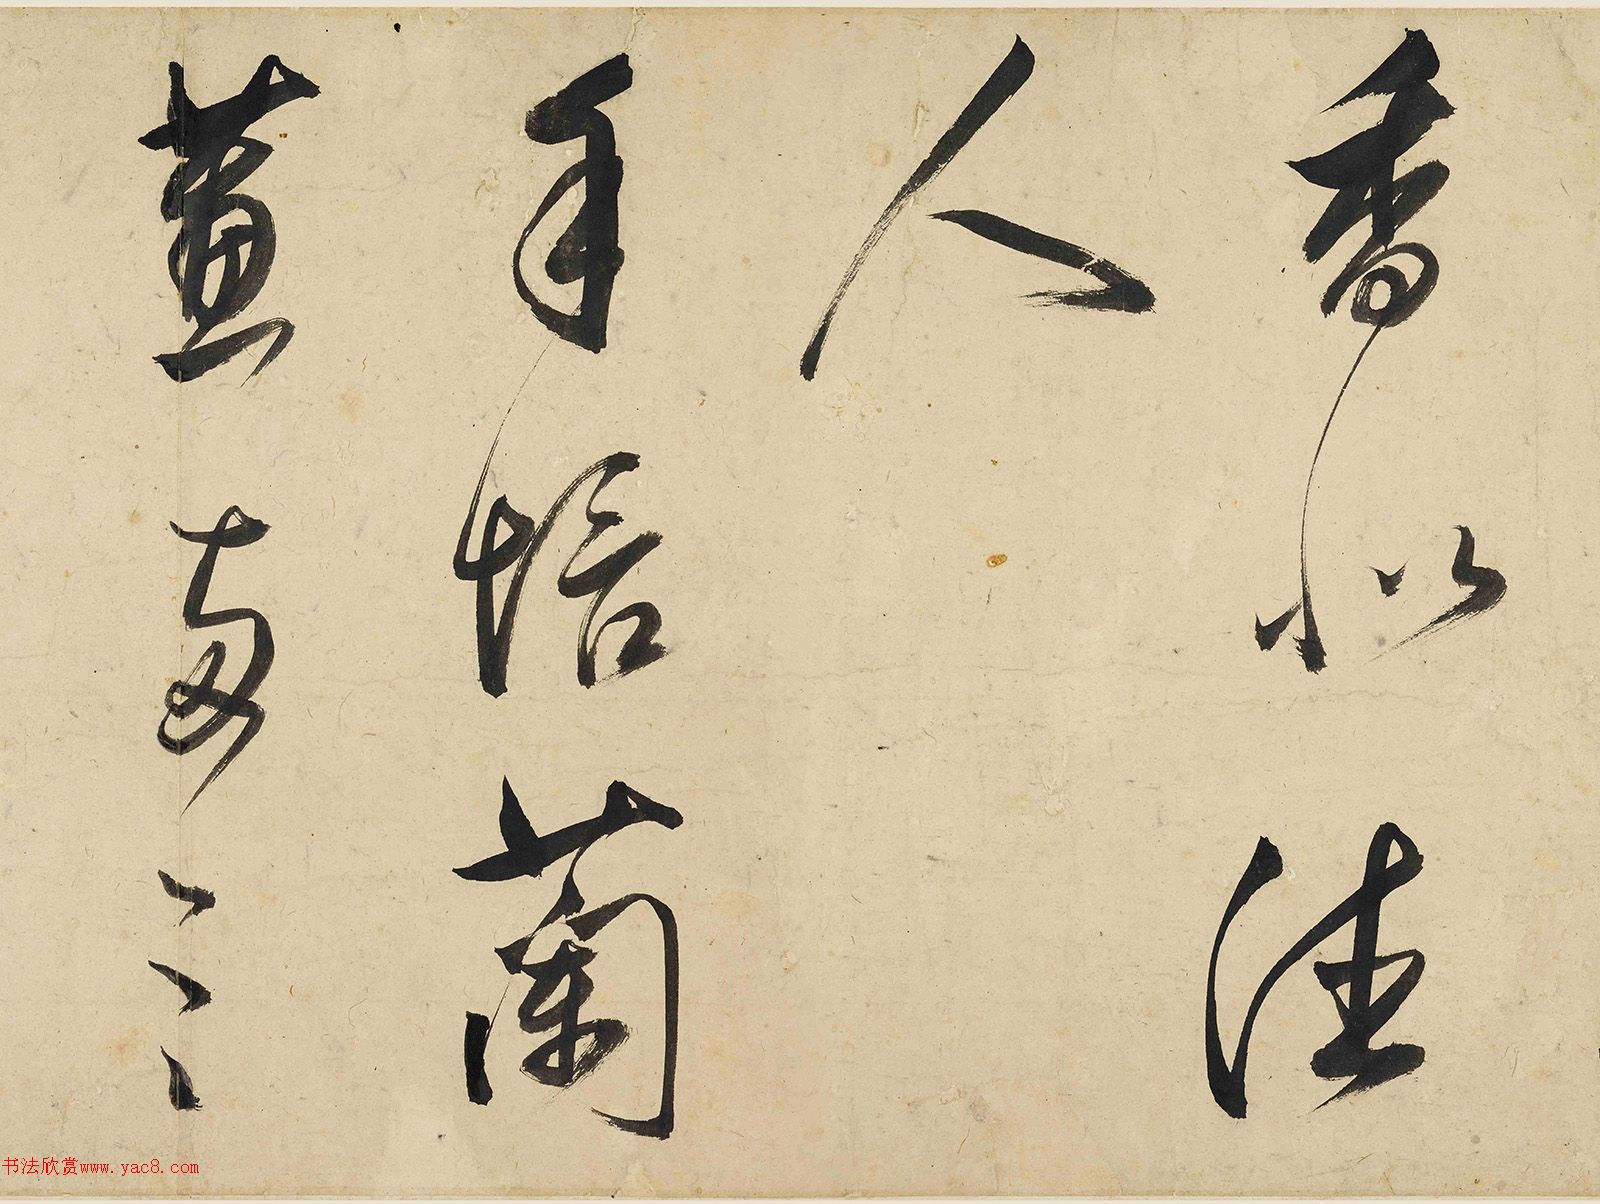 香似佳
人
手培蘭
蕙兩三
书法欣赏www.yac8.com